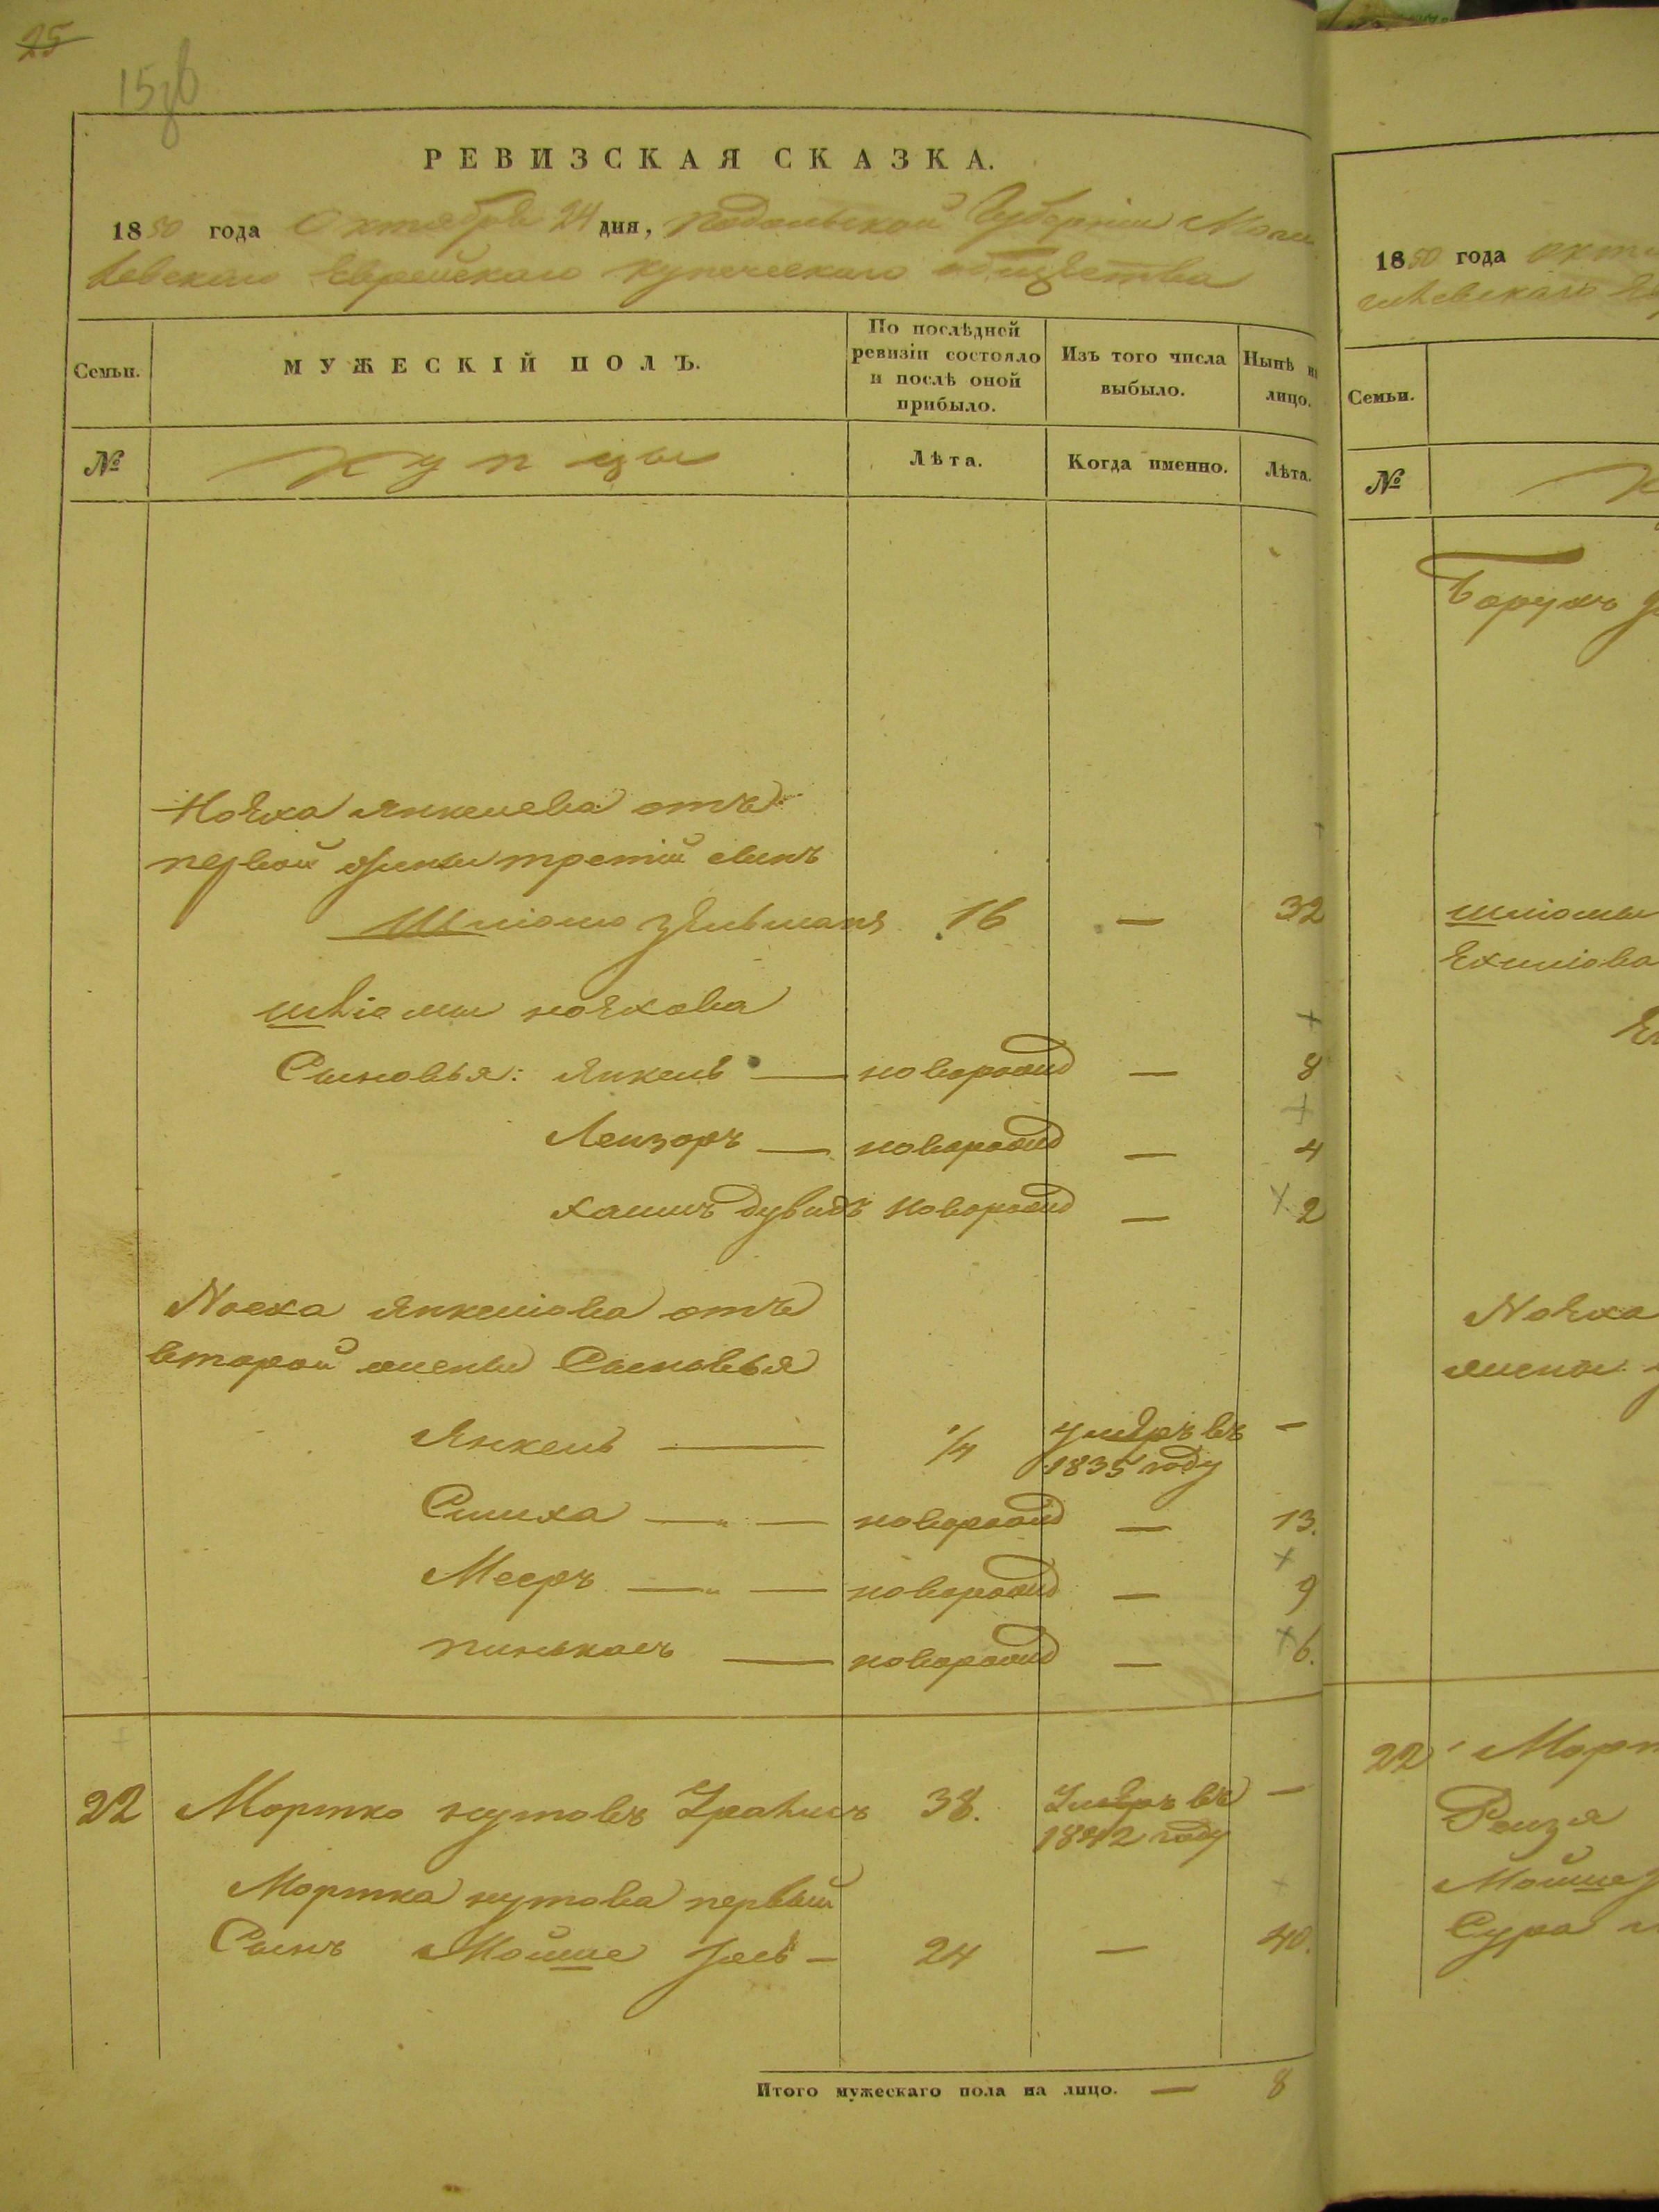 25
РЕВИЗСКАЯ СКАЗКА.
1850 года Октября 24 дня, Подольской Губерніи Моги
левскаго Еврейскаго купеческаго общества
Семьи.
МУЖЕСКІЙ ПОЛЪ.
По послѣдней ревизіи состояло и послѣ оной прибыло.
Изъ того числа выбыло.
Нынѣ на лицо.
№
Купцы
Лѣта.
Когда именно.
Лѣта.
Ноѣха Янкелева отъ
первой жены третій сынъ
Шліомо Зельманъ 16 — 32
Шліомы Ноѣхова
Сыновья: Янкель — новорожд — 8
Лейзоръ — новорожд — 4
Хаимъ Дувидъ новорожд — 2
Ноеха Янкеліова отъ
второй жены Сыновья
Янкель — 1/4 умеръ въ —
1835 году
Симха — новорожд — 13.
Мееръ — новорожд — 9
Пинькасъ — новорожд — 6.
22 Мортко Нутовъ 38. Умеръ въ —
1842 году
Мортка Нутова первый
Сынъ Мойше — 24 — 40.
Итого мужескаго пола на лицо. — 8
1850 года
Семьи.
№
Борухъ
Шліомы
Ноѣха
жены
22
Рейзя
Мойше
Сура